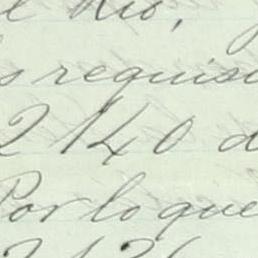 l Rio,
s requisi
2140 d
Por lo que